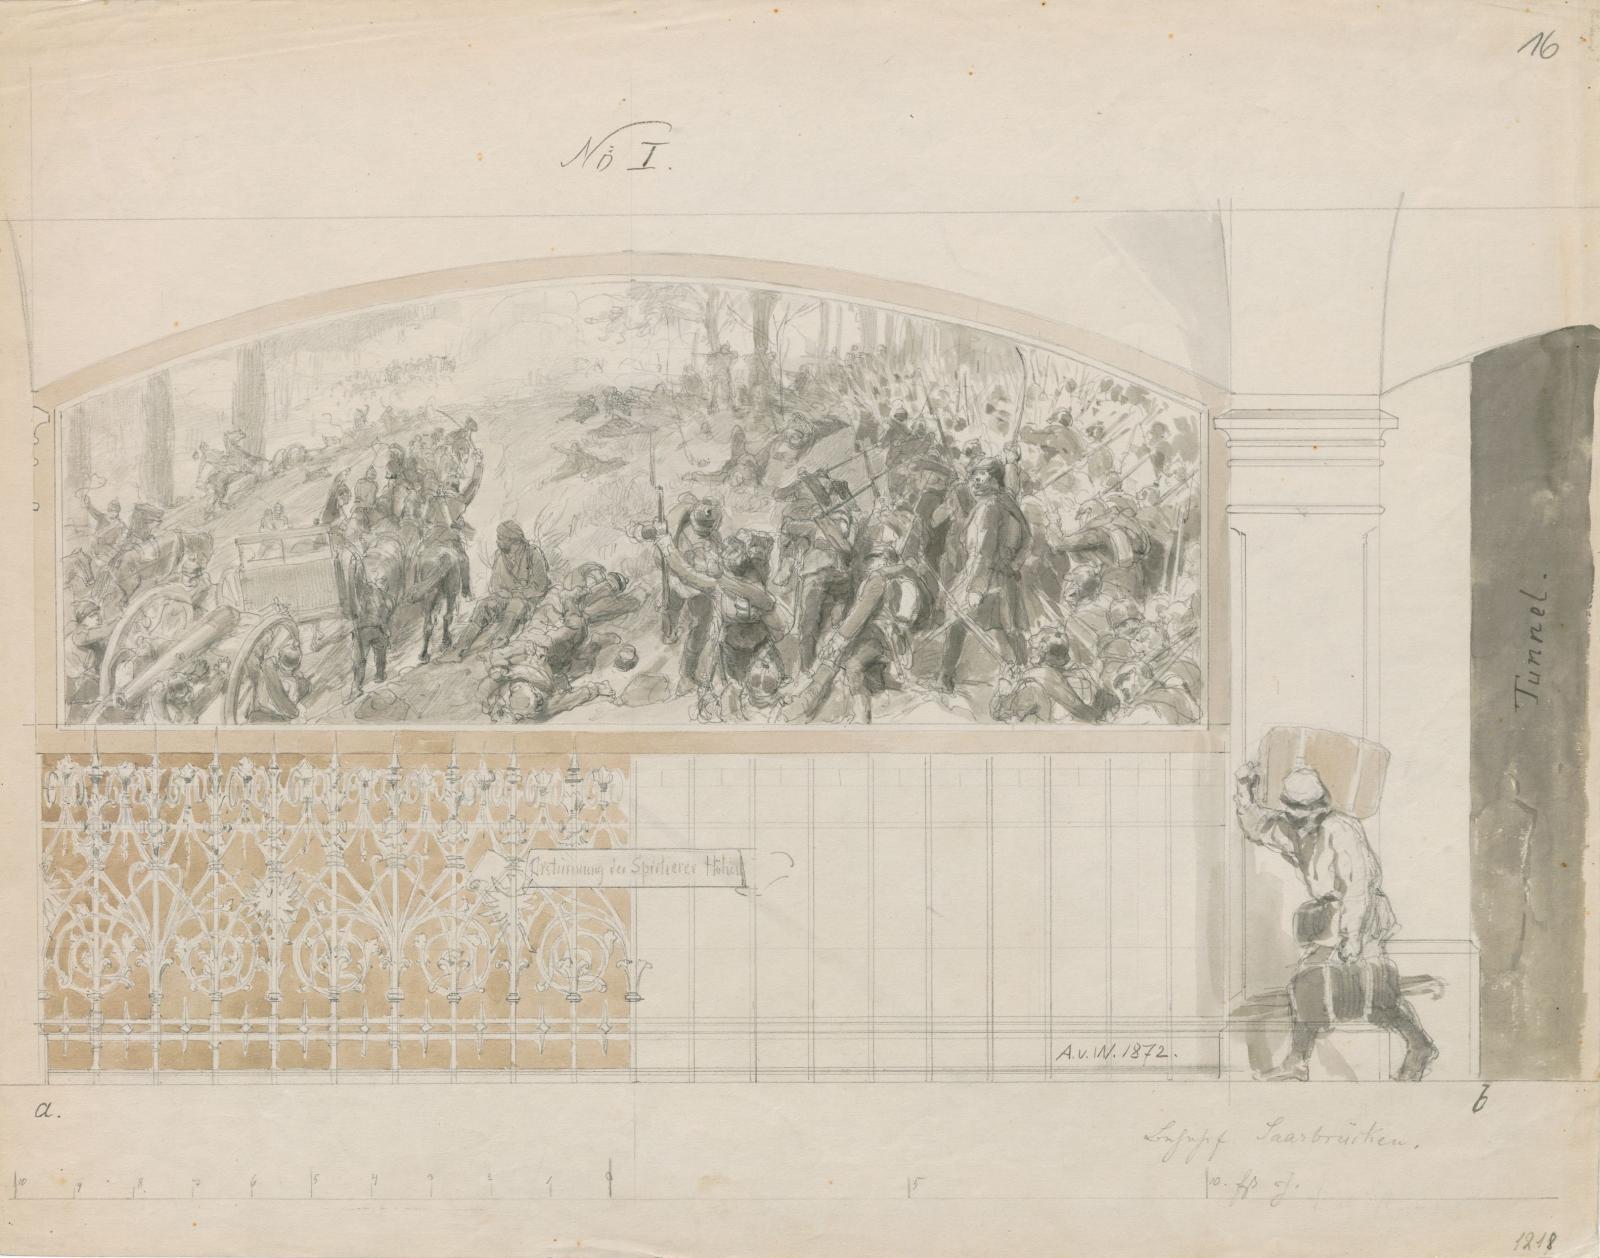 16
No I.
Erstürmung der Spicherer Höhen
Tunnel.
A.v.W. 1872.
a.
b
Bahnhof Saarbrücken.
10 9 8 7 6 5 4 3 2 1 0 5 10.
1218